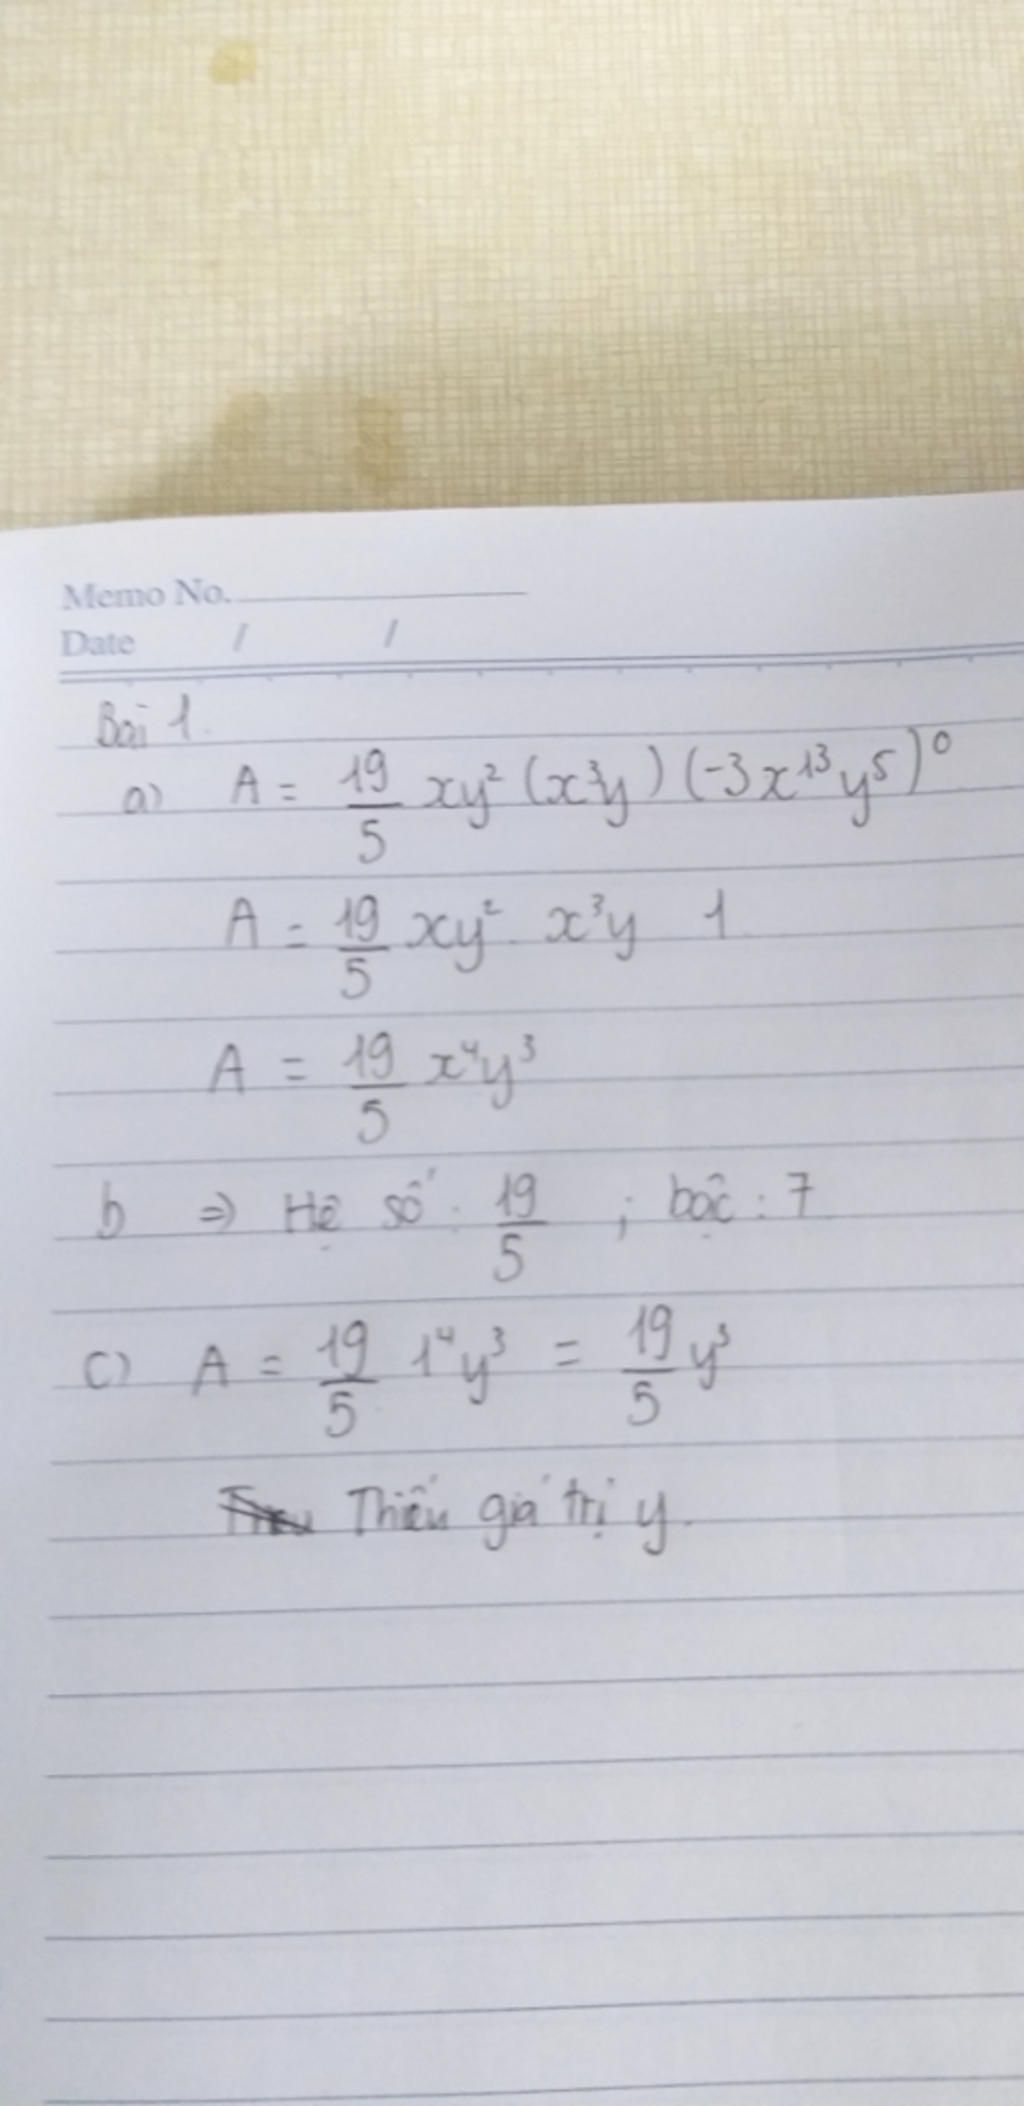 Memo No.
Date / /
Bài 1.
a) A = 19/5 xy² (x³y) (-3x¹³y⁵)⁰
A = 19/5 xy² . x³y 1
A = 19/5 x⁴y³
b ⇒ Hệ số : 19/5 ; bậc : 7
c) A = 19/5 1⁴y³ = 19/5 y³
Thiếu giá trị y.